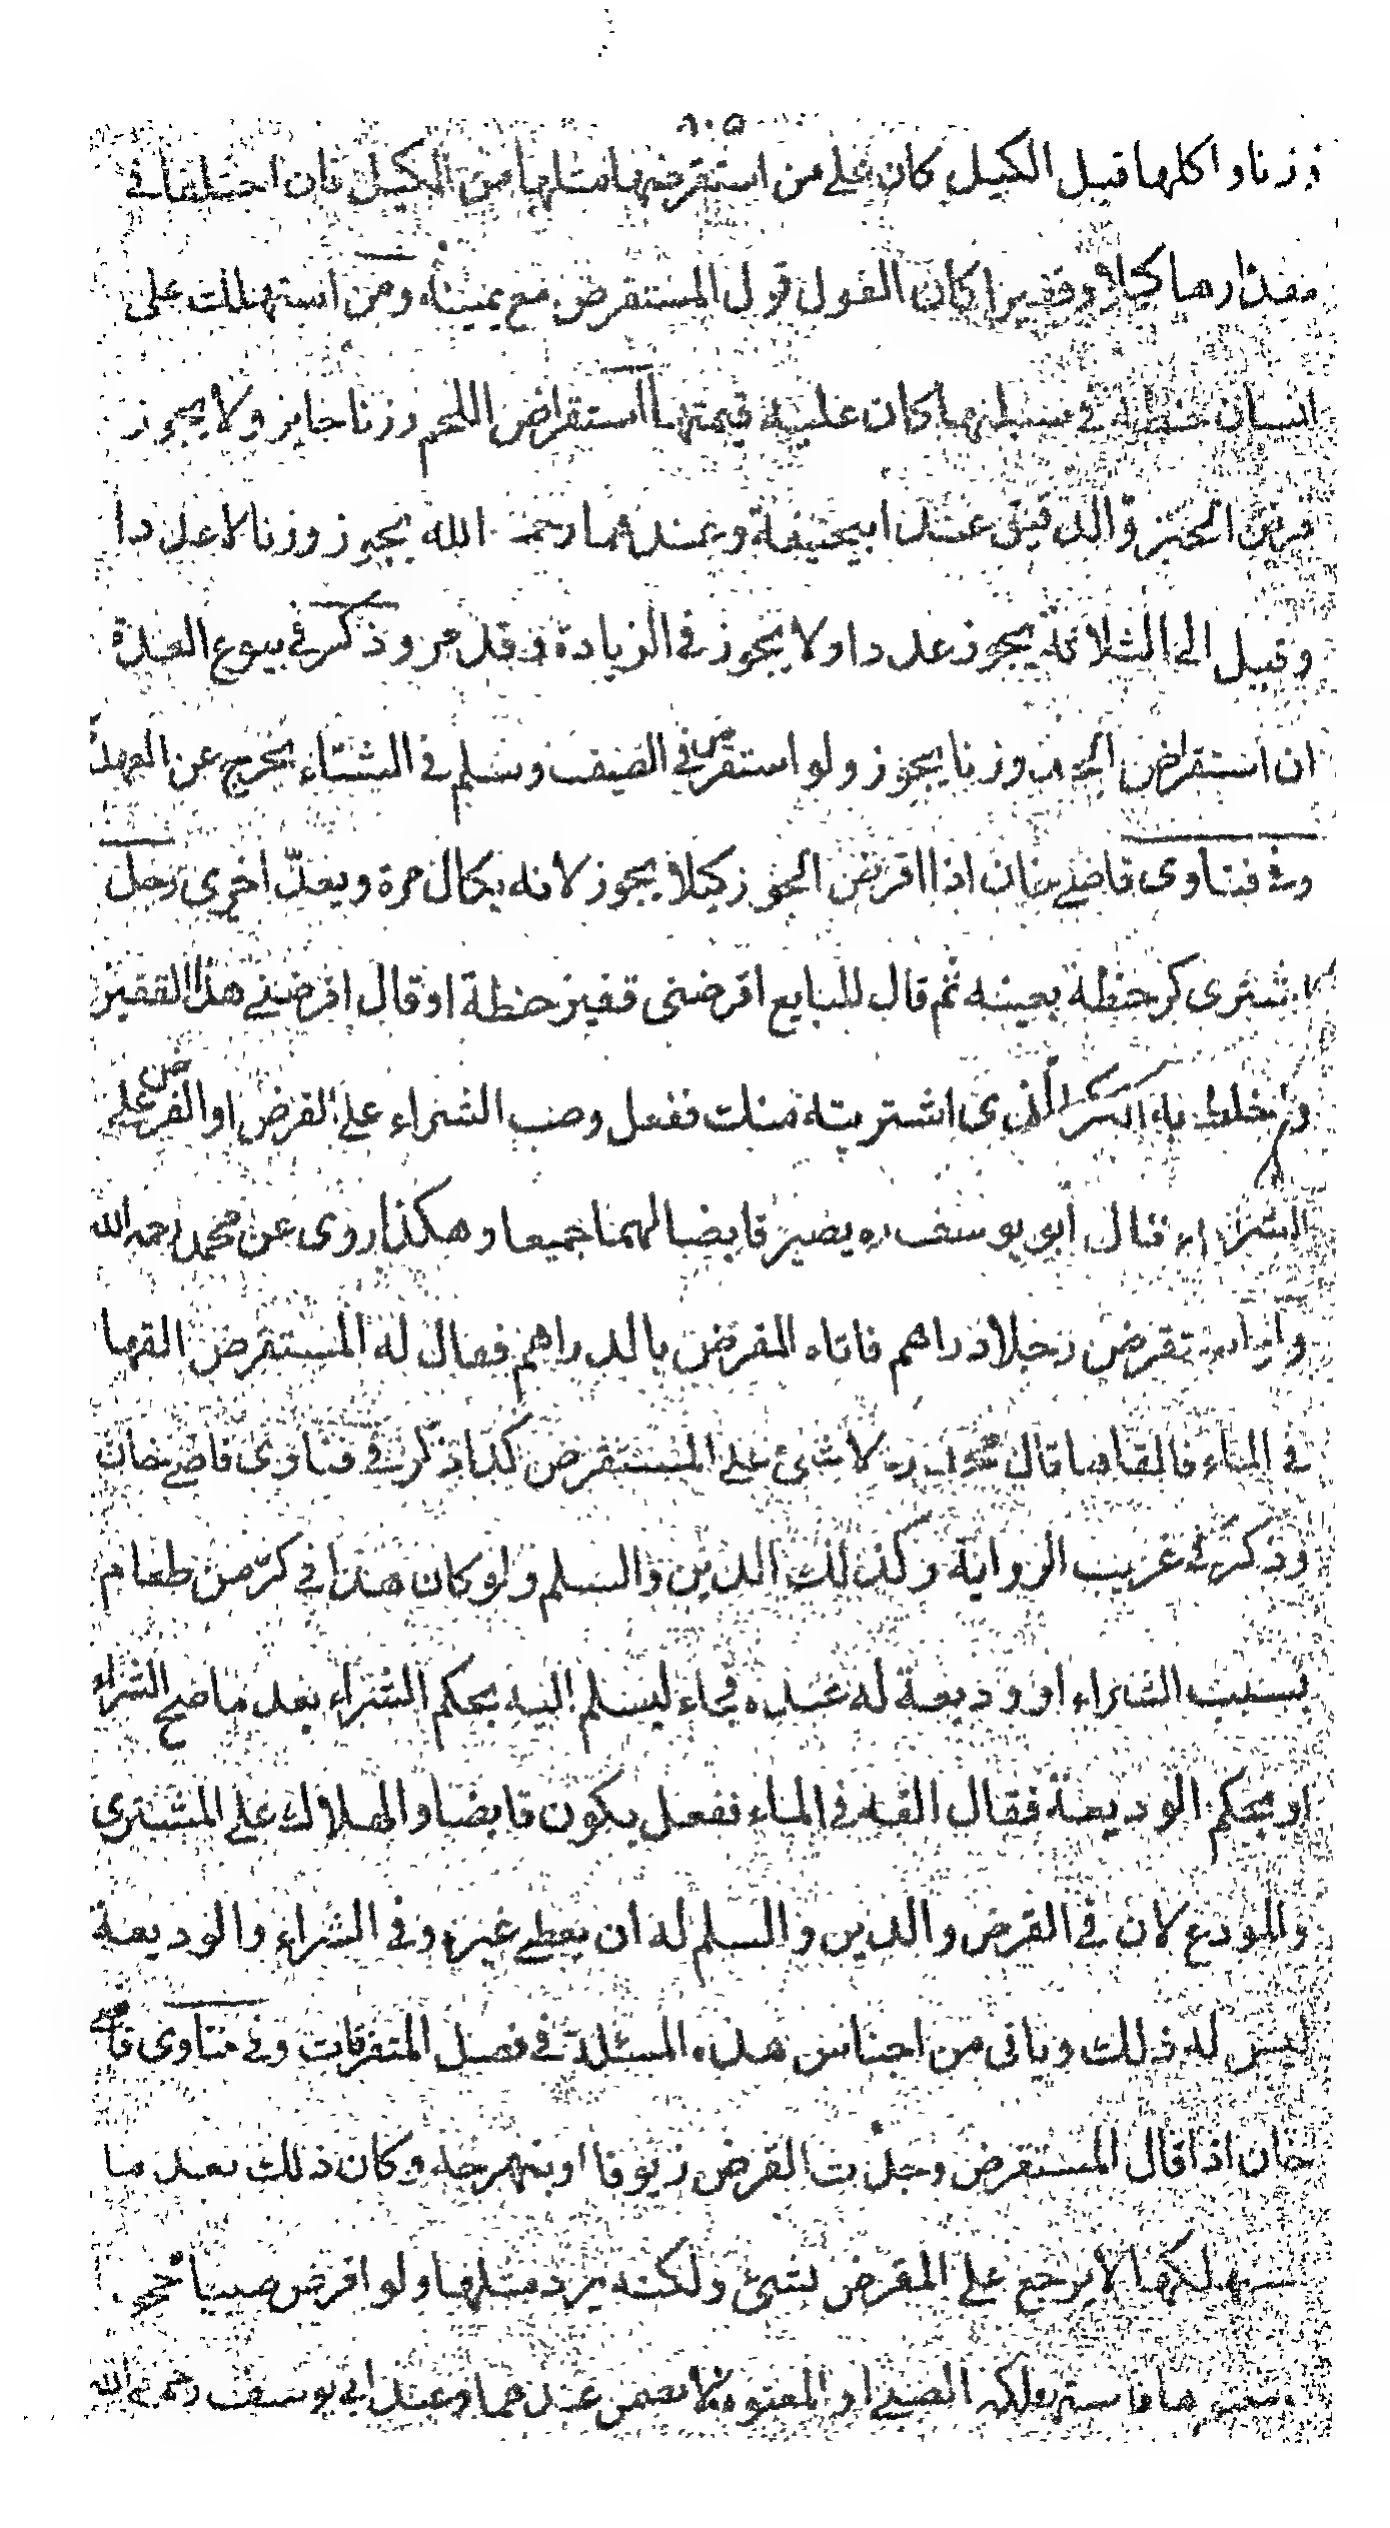 ١٠٥
وزنا واكلها قبل الكيل كان على من استقرضها مثلها من الكيل فان اختلفا في
مقدارها كيلا وقفيزا كان القول قول المستقرض مع يمينه ومن استهلك على
انسان حنطة في سنبلها كان عليه قيمتها استقراض اللحم وزنا جايز ولا يجوز
قرض الخبز والدقيق عند ابيحنيفة وعندهما رحمه الله يجوز وزنا لا عددا
وقيل الى الثلاثة يجوز عددا ولا يجوز في الزيادة وقد مر وذكر في بيوع العدة
ان استقراض وزنا يجوز ولو استقرض في الصيف وسلم في الشتاء يخرج عن العهدة
وفي فتاوى قاضي خان اذا اقرض الجوز كيلا يجوز لانه يكال مرة ويعد اخرى رجل
اشترى كر حنطة بعينه ثم قال للبايع اقرضنى قفيز حنطة او قال اقرضني هذا القفيز
واخلطه به الكر الذى اشتريته منك ففعل وصب الشراء على القرض او القرض على
الشراء قال ابو يوسف ره يصير قابضا لهما جميعا وهكذا روى عن محمد رحمه الله
واذا استقرض رجلا دراهم فاتاه المقرض بالدراهم فقال له المستقرض القها
في الماء فالقاها قال محمد ره لا شئ على المستقرض كذا ذكر في فتاوى قاضي خان
وذكر في غريب الرواية وكذلك الدين والسلم ولو كان هذا في كر من طعام
بسبب الشراء او وديعة له عنده فجاء ليسلم اليه بحكم الشراء بعد ما صح الشراء
او بحكم الوديعة فقال القه في الماء ففعل يكون قابضا والهلاك على المشترى
والمودع لان في القرض والدين والسلم له ان يعطي غيره وفي الشراء والوديعة
ليس له ذلك وياتى من اجناس هذه المسئلة في فصل المتفرقات وفي فتاوى قاضي
خان اذا قال المستقرض وجدت القرض زيوفا او بنهرجة وكان ذلك بعد ما
استهلكها لا يرجع على المقرض بشئ ولكنه يرد مثلها ولو اقرض صبيا محجورا
او معتوها فاستهلكه الصبي او المعتوه لا يضمن عندهما وعند ابي يوسف رحمه الله